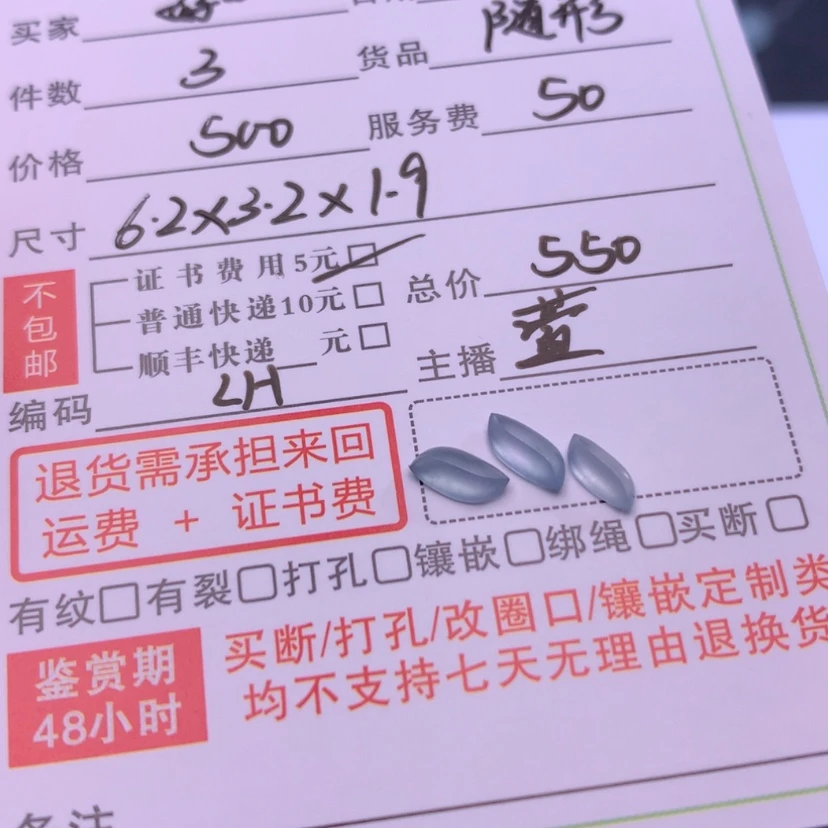 买家
件数 3 货品 随形
价格 500 服务费 50
尺寸 6.2x3.2x1.9
不包邮
证书费用5元□
普通快递10元□
顺丰快递__元□
总价 550
编码 LH 主播 萱
退货需承担来回
运费 + 证书费
有纹□有裂□打孔□镶嵌□绑绳□买断□
鉴赏期
48小时
买断/打孔/改圈口/镶嵌定制类
均不支持七天无理由退换货
备注